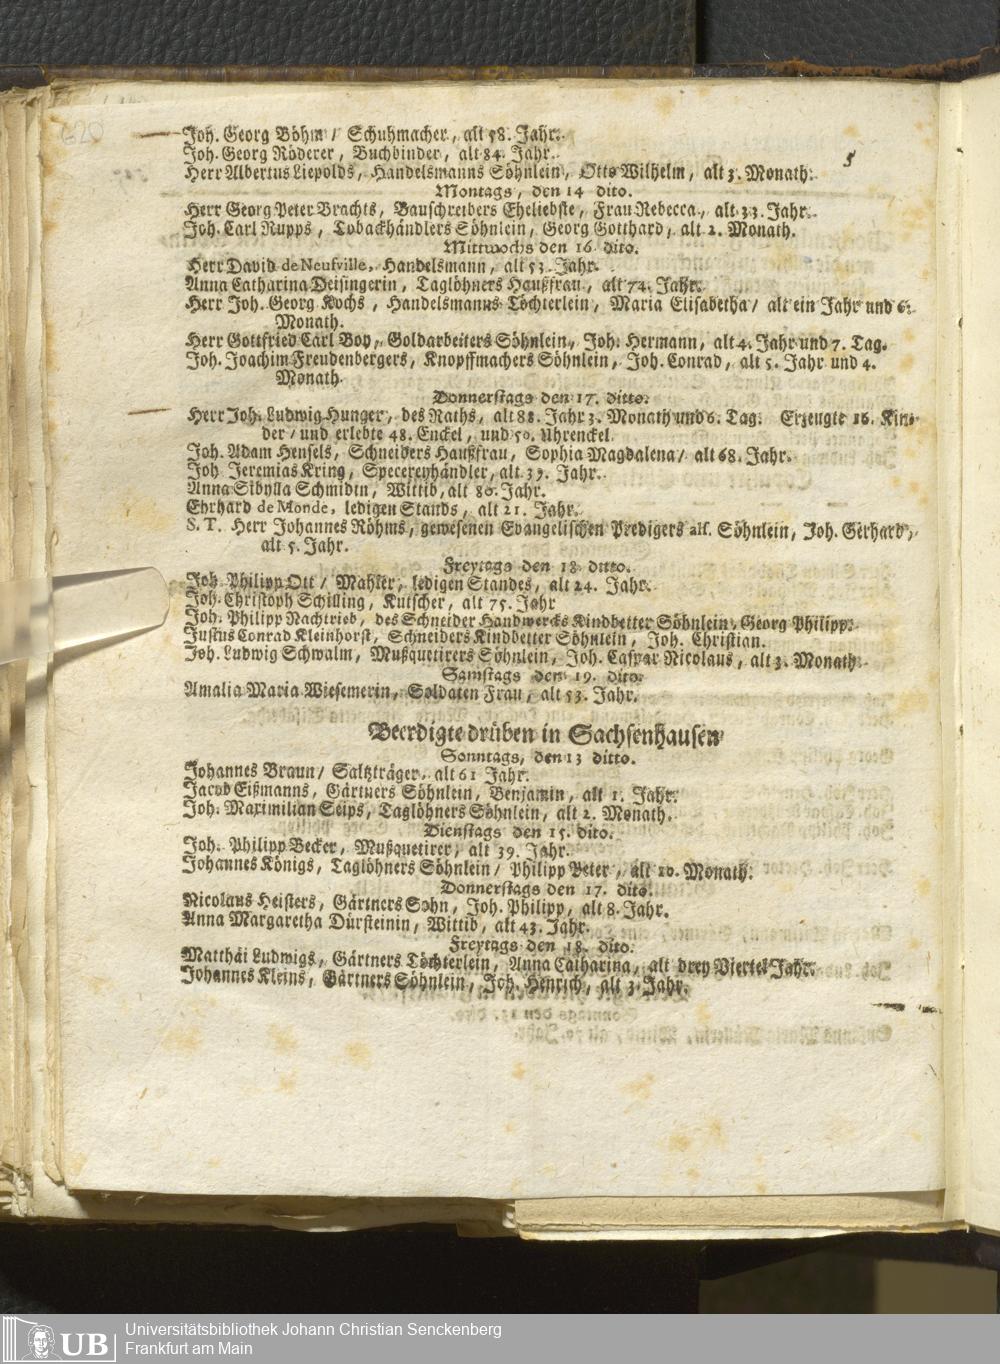 620
Joh. Georg Böhm / Schuhmacher, alt 58. Jahr.
Joh. Georg Röderer, Buchbinder, alt 84. Jahr.
Herr Albertus Liepolds, Handelsmanns Söhnlein, Otto Wilhelm, alt 3. Monath.
Montags, den 14 dito.
Herr Georg Peter Brachts, Bauschreibers Eheliebste, Frau Rebecca, alt 33. Jahr.
Joh. Carl Rupps, Tobackhändlers Söhnlein, Georg Gotthard, alt 2. Monath.
Mittwochs den 16. dito.
Herr David de Neufville, Handelsmann, alt 53. Jahr.
Anna Catharina Deisingerin, Taglöhners Haußfrau, alt 74. Jahr.
Herr Joh. Georg Kochs, Handelsmanns Töchterlein, Maria Elisabetha / alt ein Jahr und 6.
Monath.
Herr Gottfried Carl Boy, Goldarbeiters Söhnlein, Joh. Hermann, alt 4. Jahr und 7. Tag.
Joh. Joachim Freudenbergers, Knopffmachers Söhnlein, Joh. Conrad, alt 5. Jahr und 4.
Monath.
Donnerstags den 17. ditto.
Herr Joh. Ludwig Hunger, des Raths, alt 88. Jahr 3. Monath und 6. Tag. Erzeugte 16. Kin-
der / und erlebte 48. Enckel, und 50. Uhrenckel.
Joh. Adam Hensels, Schneiders Haußfrau, Sophia Magdalena / alt 68. Jahr.
Joh Jeremias Kring, Specereyhändler, alt 39. Jahr.
Anna Sibylla Schmidtn, Wittib, alt 80. Jahr.
Ehrhard de Monde, ledigen Stands, alt 21. Jahr.
S. T. Herr Johannes Röhms, gewesenen Evangelischen Predigers all. Söhnlein, Joh. Gerhard,
alt 5. Jahr.
Freytags den 18. ditto.
Joh. Philipp Ott / Mahler, ledigen Standes, alt 24. Jahr.
Joh. Christoph Schilling, Kutscher, alt 75. Jahr
Joh. Philipp Nachtrieb, des Schneider Handwercks Kindbetter Söhnlein, Georg Philipp.
Justus Conrad Kleinhorst, Schneiders Kindbetter Söhnlein, Joh. Christian.
Joh. Ludwig Schwalm, Mußquetirers Söhnlein, Joh. Caspar Nicolaus, alt 3. Monath.
Samstags den 19. dito.
Amalia Maria Wiesemerin, Soldaten Frau, alt 53. Jahr.
Beerdigte drüben in Sachsenhausen
Sonntags, den 13 ditto.
Johannes Braun / Saltzträger, alt 61 Jahr.
Jacob Eißmanns, Gärtners Söhnlein, Benjamin, alt 1. Jahr.
Joh. Maximilian Seips, Taglöhners Söhnlein, alt 2. Monath.
Dienstags den 15. dito.
Joh. Philipp Becker, Mußquetirer, alt 39. Jahr.
Johannes Königs, Taglöhners Söhnlein / Philipp Peter, alt 10. Monath.
Donnerstags den 17. dito.
Nicolaus Heisters, Gärtners Sohn, Joh. Philipp, alt 8. Jahr.
Anna Margaretha Dürsteinin, Wittib, alt 43. Jahr.
Freytags den 18. dito.
Matthäi Ludwigs, Gärtners Töchterlein, Anna Catharina, alt drey Viertel Jahr.
Johannes Kleins, Gärtners Söhnlein, Joh. Henrich, alt 3. Jahr.
UB Universitätsbibliothek Johann Christian Senckenberg
Frankfurt am Main